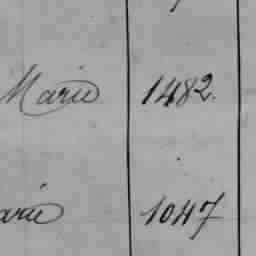 Marie 1482.
arie 1047